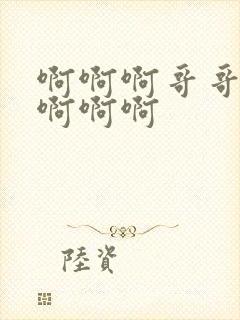 啊啊啊哥哥
啊啊啊
陸資